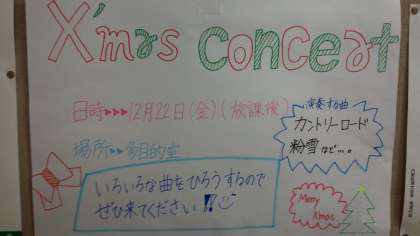 X'mas conceat
日時▸▸▸12月22日(金)(放課後)
場所▸▸多目的室
演奏する曲
カントリーロード
粉雪など…。
いろいろな曲をひろうするので
ぜひ来てください!!
Merry
Xmas